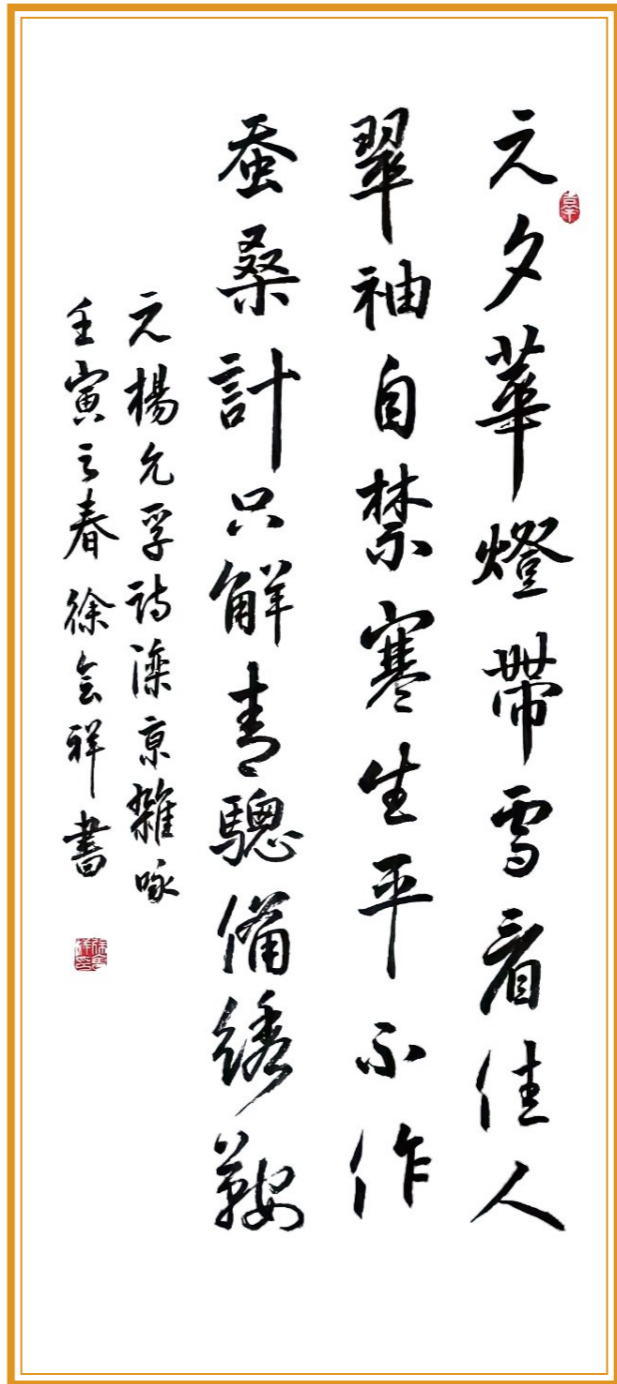 元夕華燈帶雪看佳人
翠袖自禁寒生平不作
蚕桑計只解青驄備绣鞍
元楊允孚诗滦京雜咏
壬寅之春徐会祥書